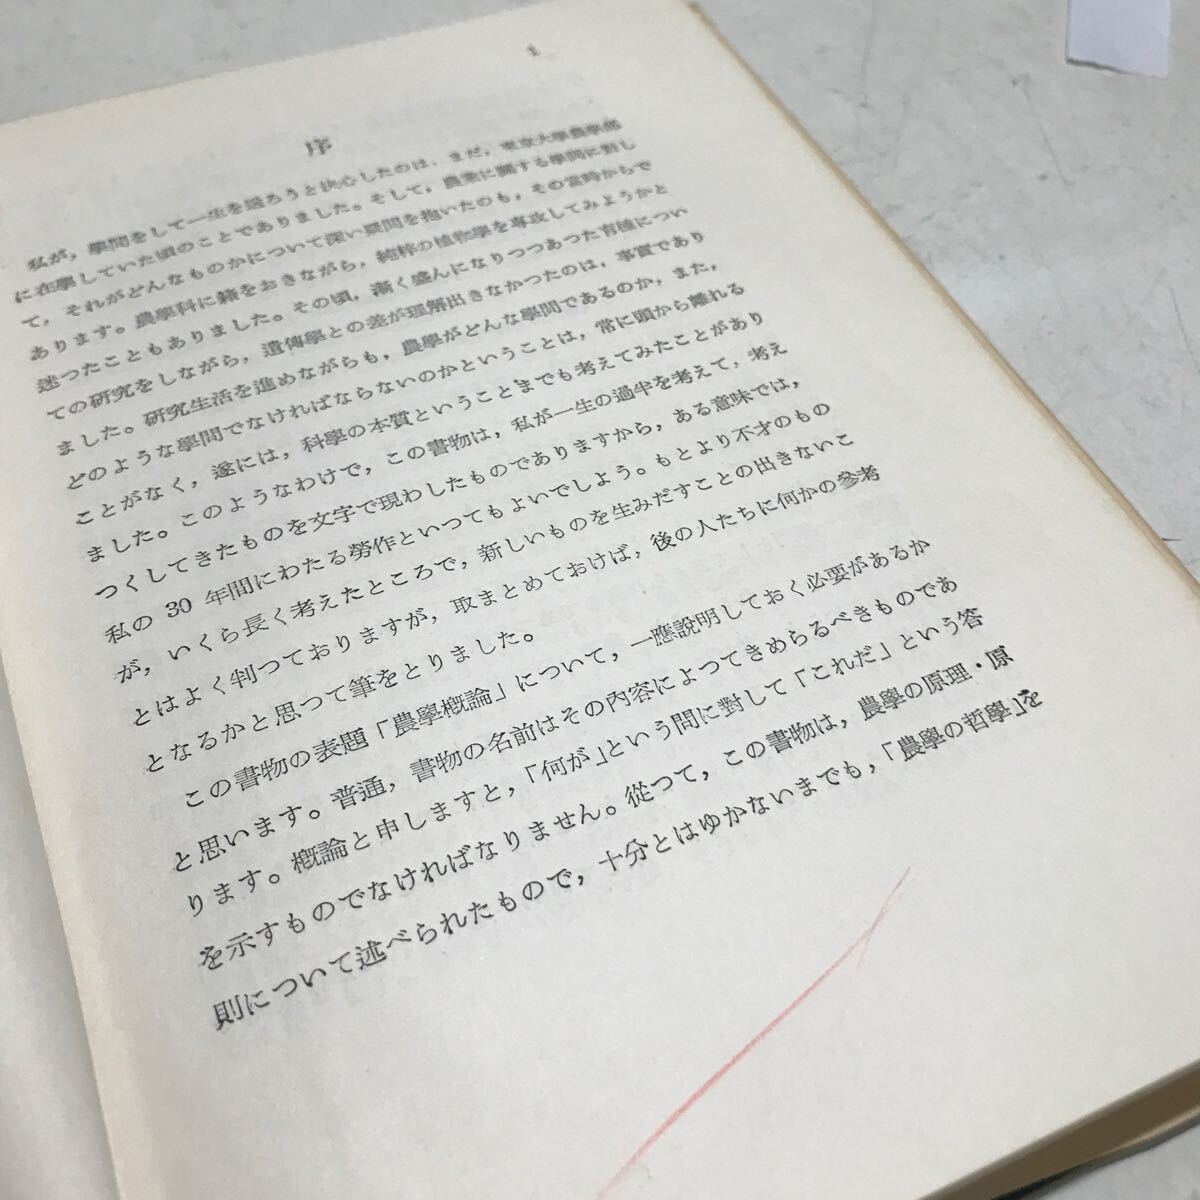 1
序
私が，學問をして一生を送ろうと決心したのは，まだ，東京大學農學部
に在學していた頃のことでありました。そして，農業に關する學問に對し
て，それがどんなものかについて深い疑問を抱いたのも，その當時からで
あります。農學科に籍をおきながら，純粹の植物學を專攻してみようかと
迷つたこともありました。その頃，漸く盛んになりつつあつた育種につい
ての研究をしながら，遺傳學との差が理解出きなかつたのは，事實であり
ました。研究生活を進めながらも，農學がどんな學問であるのか，また，
どのような學問でなければならないのかということは，常に頭から離れる
ことがなく，遂には，科學の本質ということまでも考えてみたことがあり
ました。このようなわけで，この書物は，私が一生の過半を考えて，考え
つくしてきたものを文字で現わしたものでありますから，ある意味では，
私の 30 年間にわたる勞作といつてもよいでしよう。もとより不才のもの
が，いくら長く考えたところで，新しいものを生みだすことの出きないこ
とはよく判つておりますが，取まとめておけば，後の人たちに何かの參考
となるかと思つて筆をとりました。
この書物の表題「農學槪論」について，一應說明しておく必要があるか
と思います。普通，書物の名前はその內容によつてきめらるべきものであ
ります。槪論と申しますと，「何が」という問に對して「これだ」という答
を示すものでなければなりません。從つて，この書物は，農學の原理・原
則について述べられたもので，十分とはゆかないまでも，「農學の哲學」を